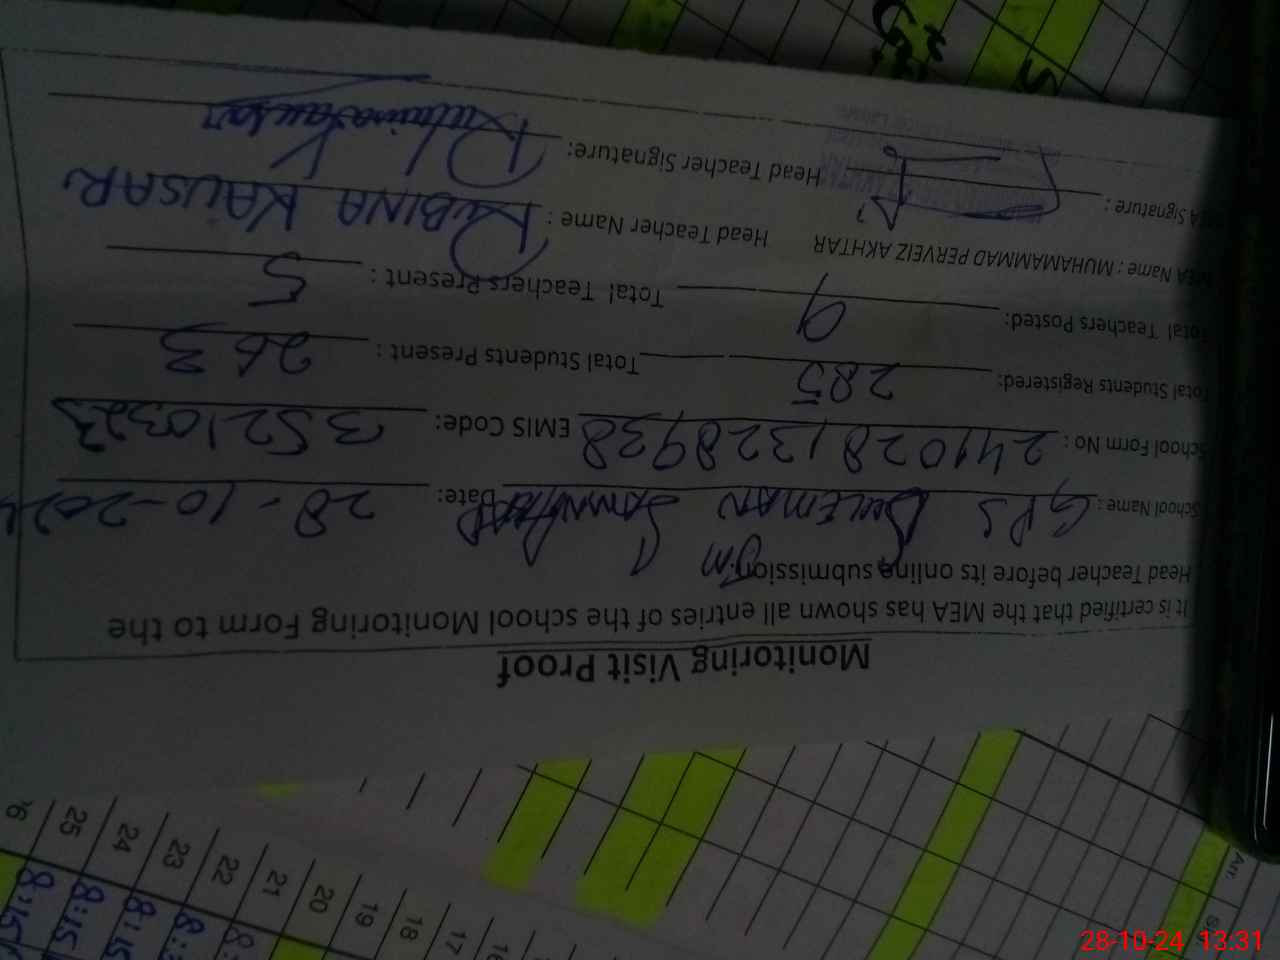 Monitoring Visit Proof
It is certified that the MEA has shown all entries of the school Monitoring Form to the
Head Teacher before its online submission.
School Name : GPS SULEMAN Date: 28-10-2024
School Form No : 2410281328938 EMIS Code: 35210323
Total Students Registered: 285 Total Students Present : 263
Total Teachers Posted: 9 Total Teachers Present : 5
MEA Name : MUHAMAMMAD PERVEIZ AKHTAR Head Teacher Name : RUBINA KAUSAR
MEA Signature : Head Teacher Signature: Rubina Kausar
25 24 23 22 21 20 19 18 17 16
8:15 8:15 8:15
28-10-24 13:31